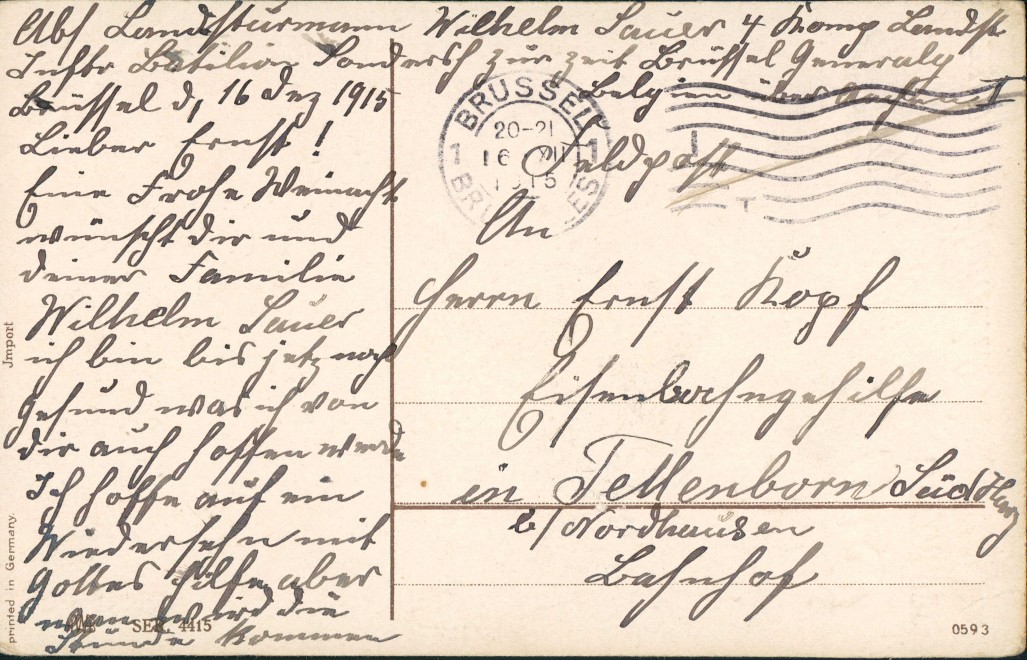 Abs Landsturmann Wilhelm Sauer 4 Komp Landst
Inftr Batilion Sondersh zur zeit Brüssel
Belgien
Brüssel d, 16 Dez 1915
Lieber Ernst!
Eine Frohe Weinacht
wünscht dir und
deiner Familie
Wilhelm Sauer
ich bin bis jetz noch
gesund was ich von
dir auch hoffen werde
Ich hoffe auf ein
Wiedersehn mit
Gottes hilfe, aber
wann wird die
Stunde kommen
BRUSSEL
20-21
1 16 XII 1
15
Feldpost
An
Herrn Ernst Kopf
Eisenbahngehilfe
in Tettenborn Südharz
b/Nordhausen
Bahnhof
Jmport
printed in Germany.
SER. 4415
0593